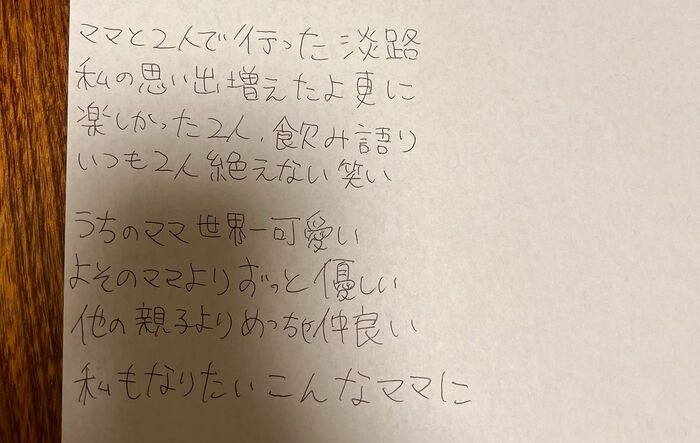 ママと2人で行った淡路
私の思い出増えたよ更に
楽しかった2人、飲み語り
いつも2人絶えない笑い
うちのママ世界一可愛い
よそのママよりずっと優しい
他の親子よりめっちゃ仲良い
私もなりたいこんなママに